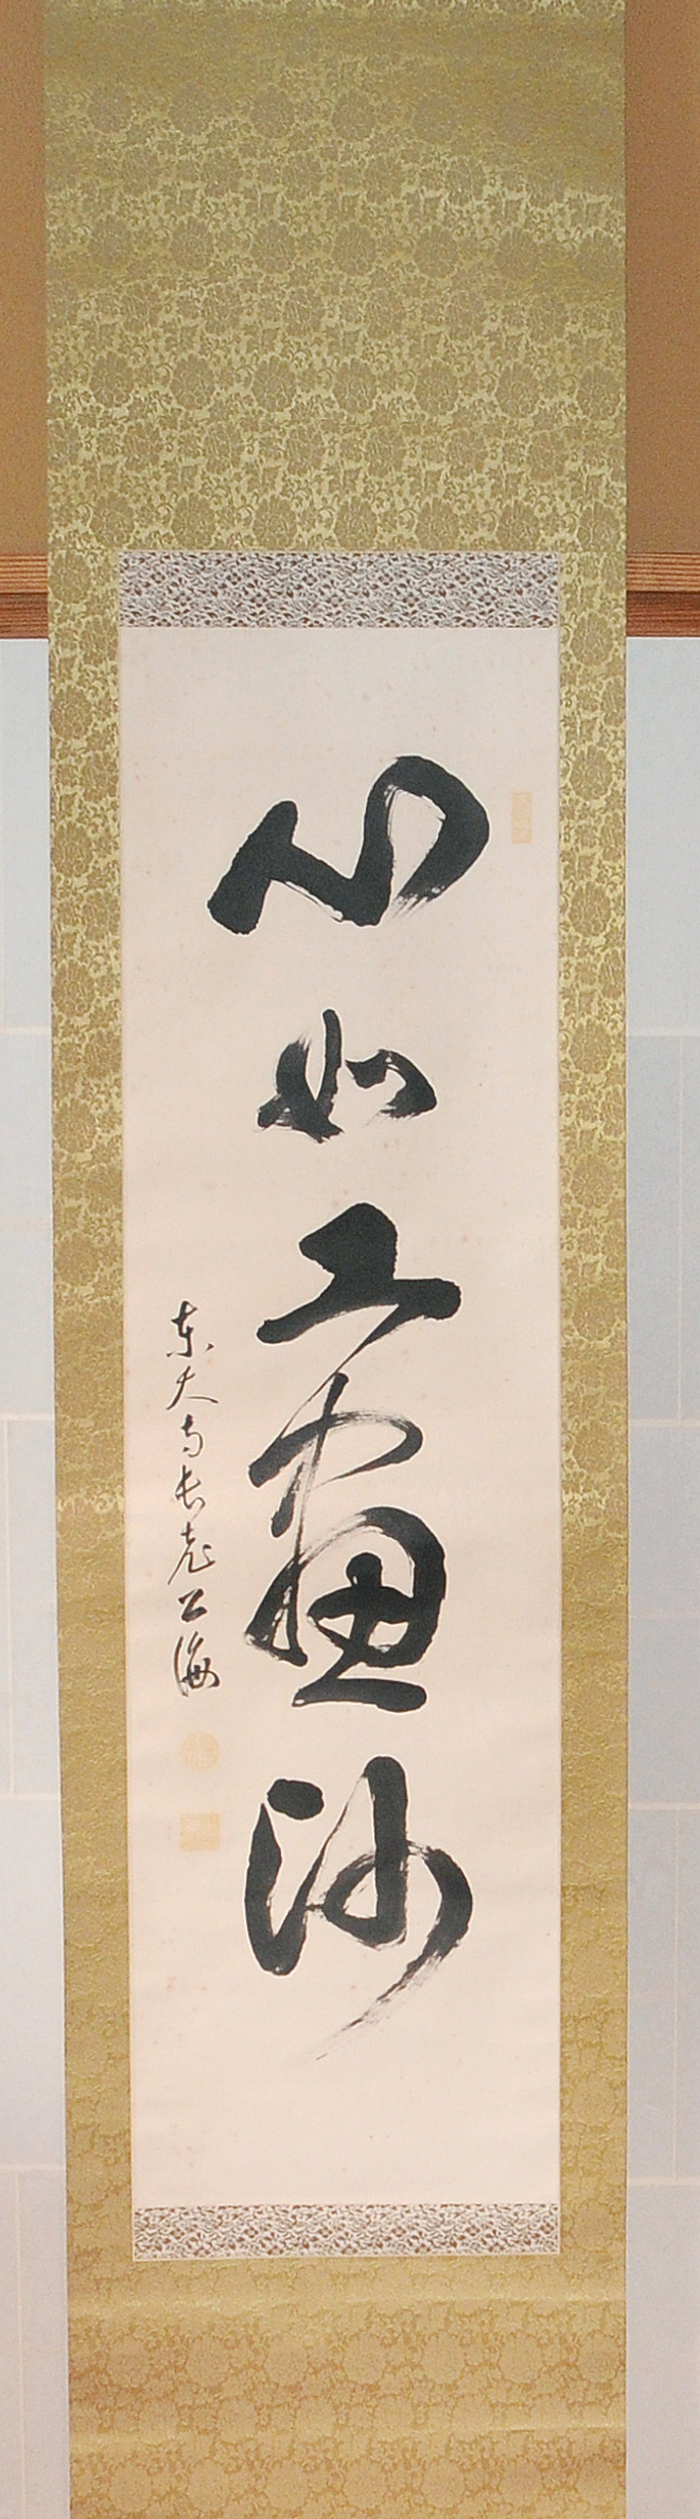 心如工画沙
東大寺長老公海